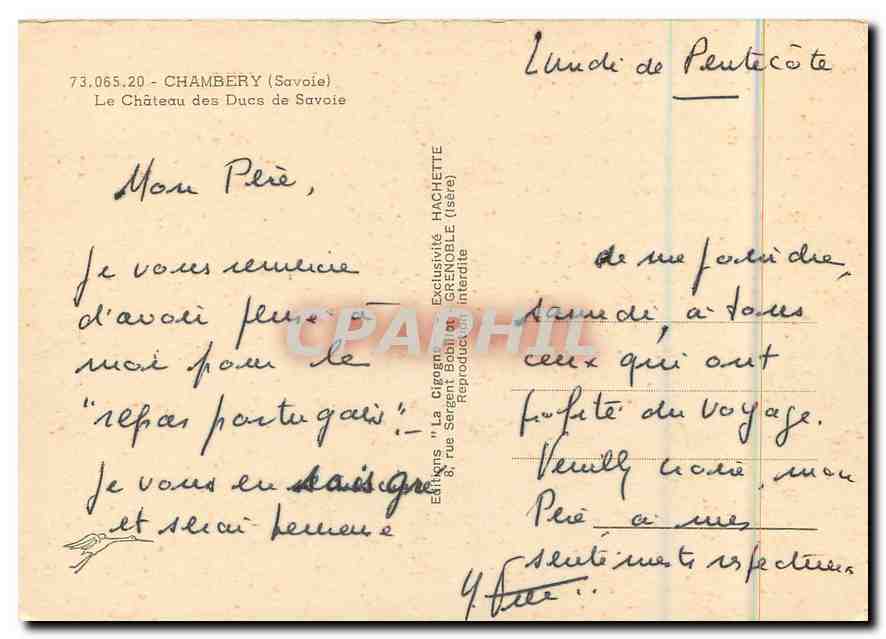 73.065.20 - CHAMBERY (Savoie)
Le Château des Ducs de Savoie
Lundi de Pentecôte
Mon Père,
Je vous remercie
d'avoir pensé à
moi pour le
"repas portugais".-
Je vous en sais gré
et serai heureuse
Editions "La Cigogne" - Exclusivité HACHETTE
8, rue Sergent Bobillot - GRENOBLE (Isère)
Reproduction interdite
CPAPHIL
de me joindre,
samedi, à tous
ceux qui ont
profité du voyage.
Veuillez croire, mon
Père à mes
sentiments respectueux